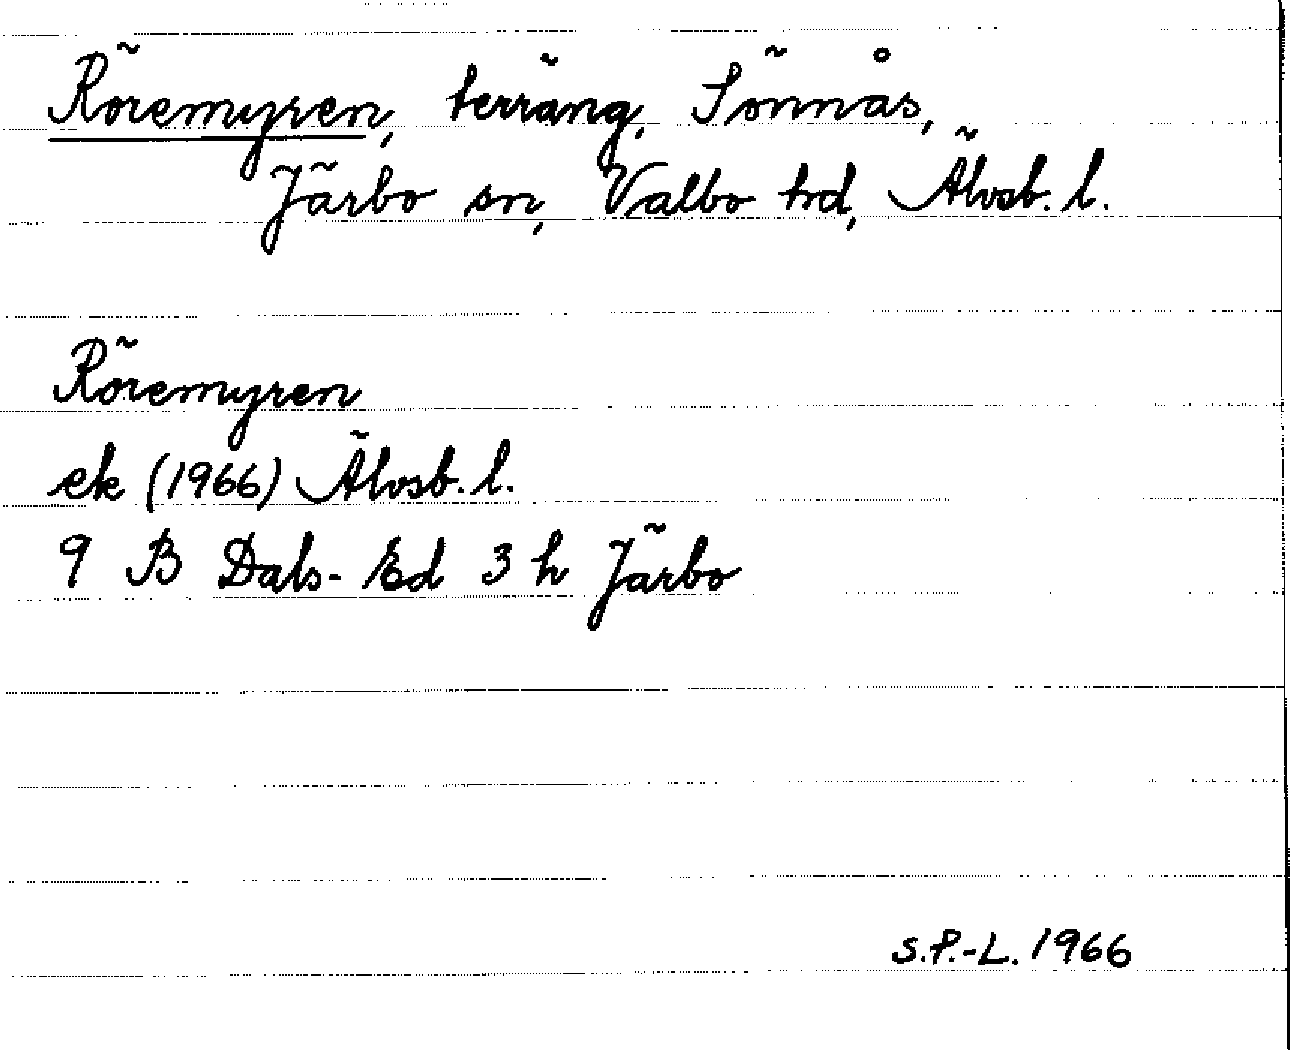 Röremyren, terräng, Sönnås,
Järbo sn, Valbo hd, Älvsb. l.
Röremyren
ek (1966) Älvsb. l.
9 B Dals-Ed 3 h Järbo
S.P.-L. 1966